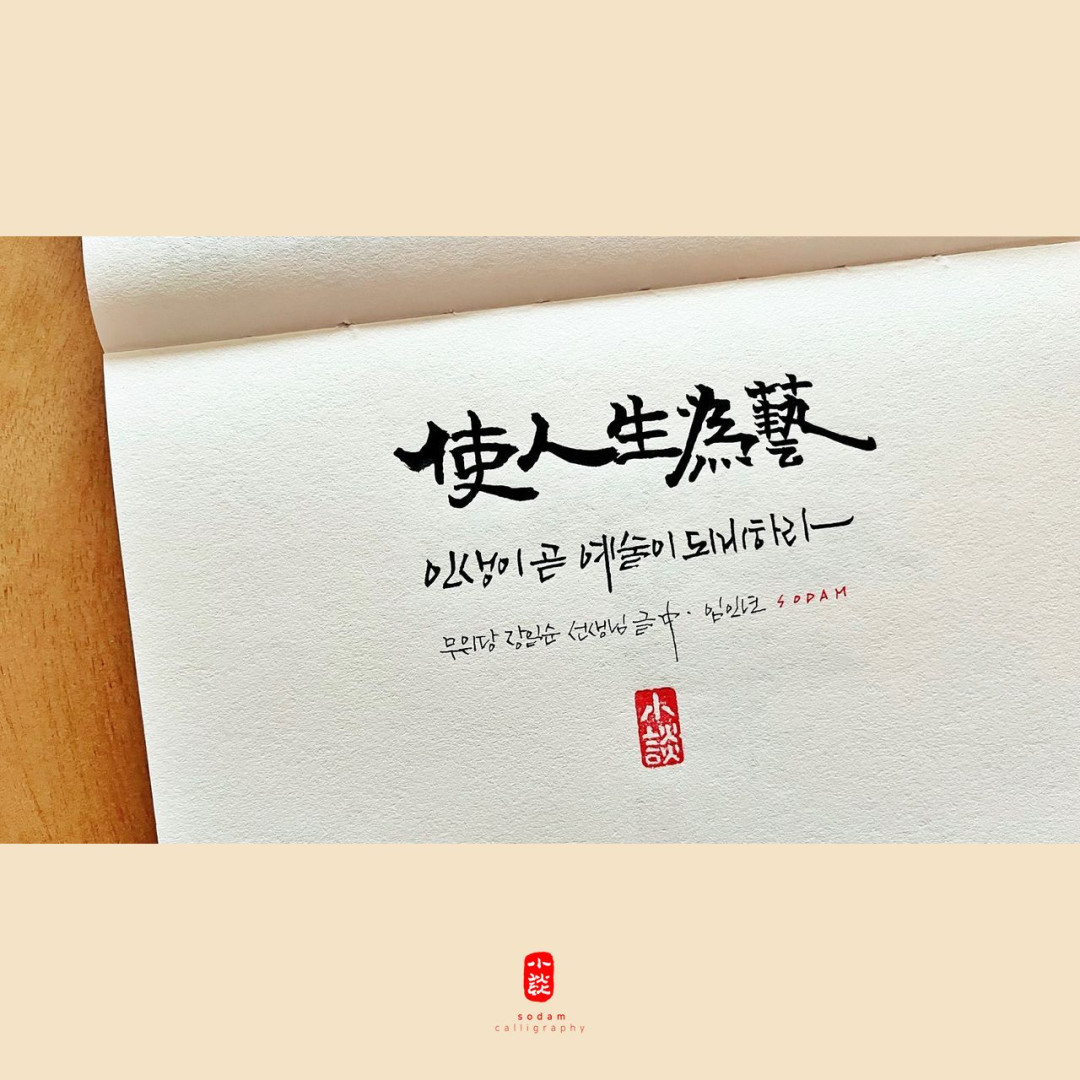 使人生為藝
인생이 곧 예술이 되게 하라
무위당 장일순 선생님 글 中 · 임인년 SODAM
小談
小談
sodam
calligraphy